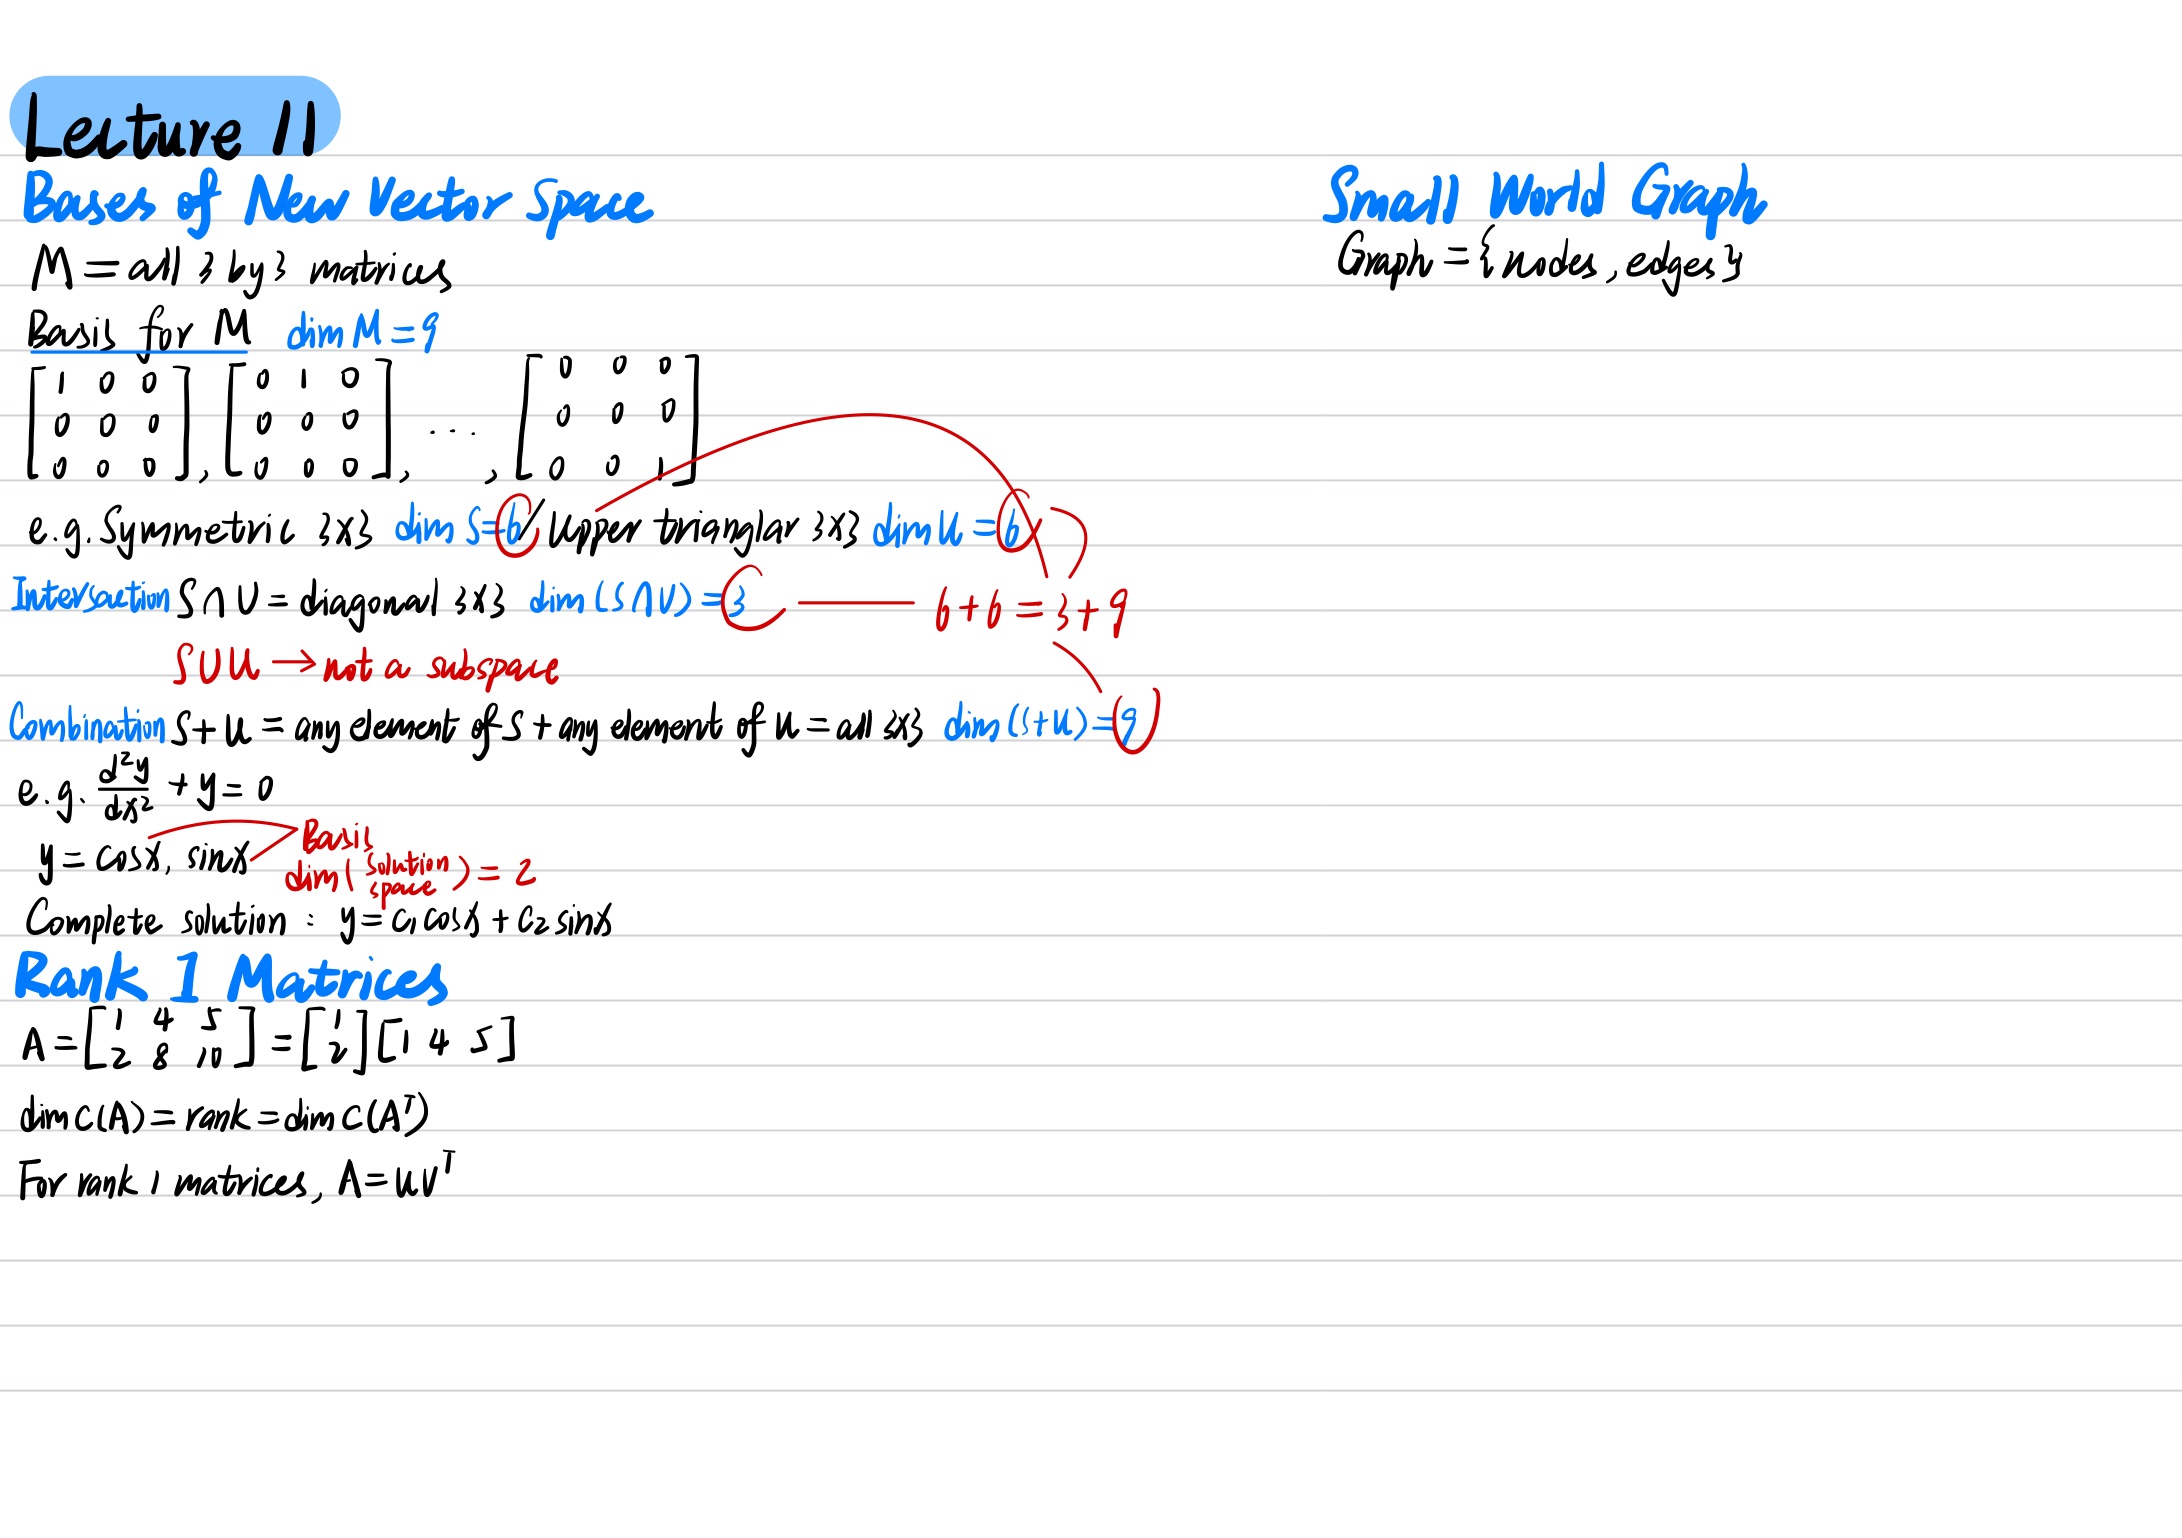 Lecture 11
Bases of New Vector Space
M = all 3 by 3 matrices
Basis for M dim M = 9
[1 0 0; 0 0 0; 0 0 0], [0 1 0; 0 0 0; 0 0 0], ... , [0 0 0; 0 0 0; 0 0 1]
e.g. Symmetric 3x3 dim S = 6 / Upper trianglar 3x3 dim U = 6
Intersaction S∩U = diagonal 3x3 dim(S∩U) = 3 6+6 = 3+9
S∪U → not a subspace
Combination S+U = any element of S + any element of U = all 3x3 dim(S+U) = 9
e.g. d²y/dx² + y = 0
y = cosx, sinx Basis
dim(solution space) = 2
Complete solution : y = c₁cosx + c₂sinx
Rank 1 Matrices
A = [1 4 5; 2 8 10] = [1; 2][1 4 5]
dim C(A) = rank = dim C(Aᵀ)
For rank 1 matrices, A = uvᵀ
Small World Graph
Graph = {nodes, edges}